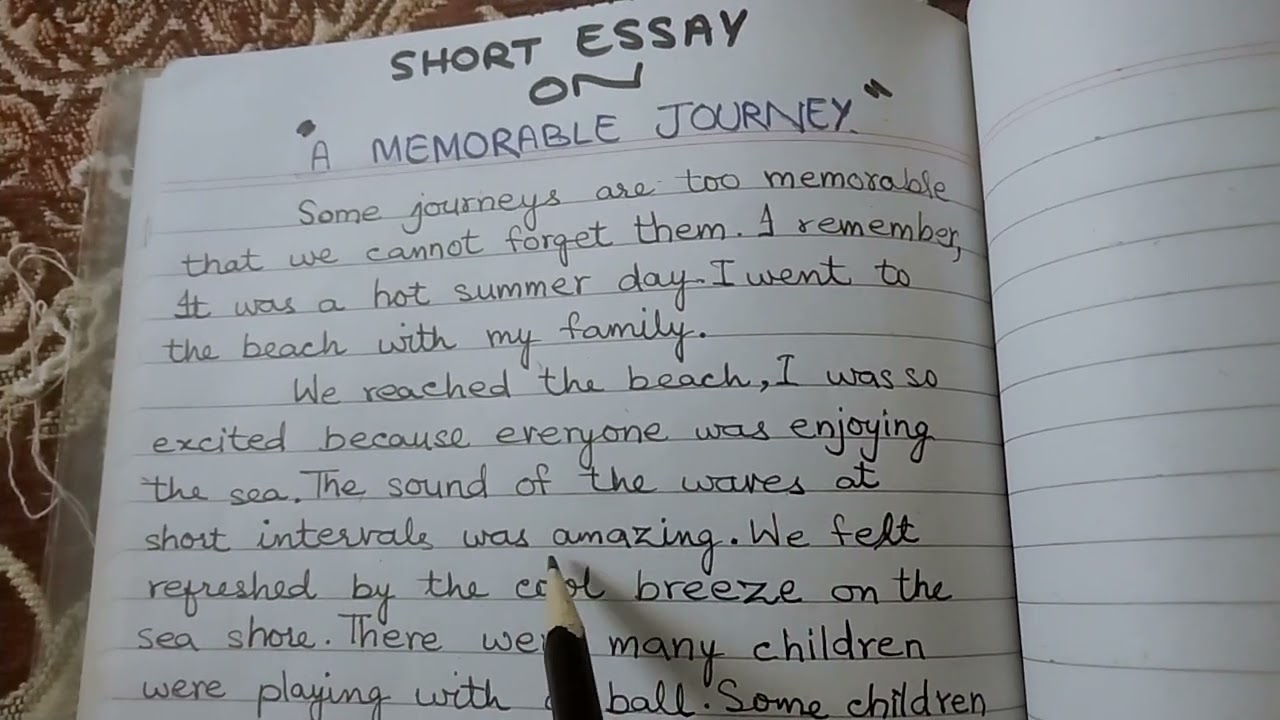 SHORT ESSAY
ON
"A MEMORABLE JOURNEY"
Some journeys are too memorable
that we cannot forget them. I remember,
It was a hot summer day. I went to
the beach with my family.
We reached the beach, I was so
excited because everyone was enjoying
the sea. The sound of the waves at
short intervals was amazing. We felt
refreshed by the cool breeze on the
sea shore. There many children
were playing with ball. Some children